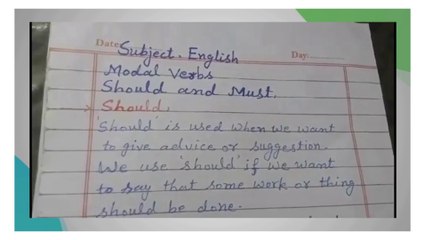 Date: Subject. English Day:
Modal Verbs
Should and Must.
Should.
'Should' is used when we want
to give advice or suggestion.
We use 'should' if we want
to say that some work or thing
should be done.